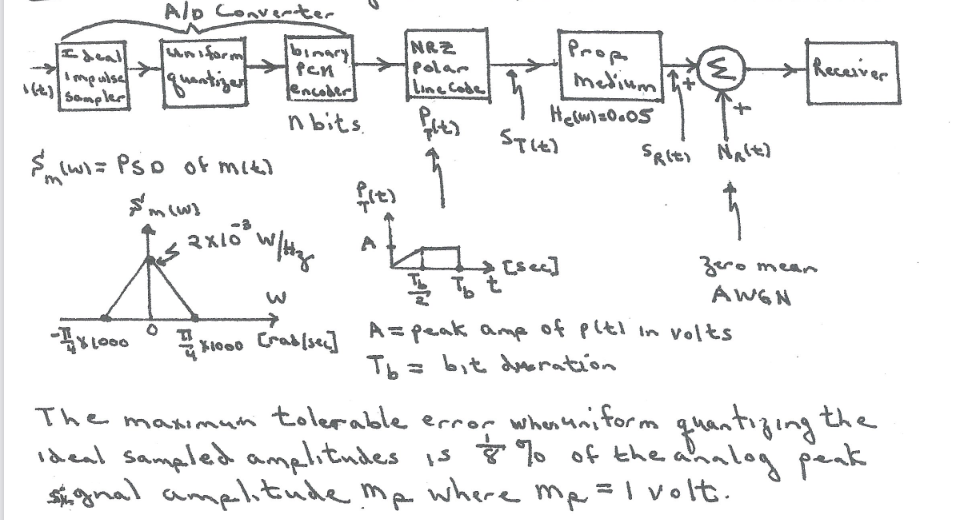 A/D Converter
Ideal
impulse
sampler
uniform
quantizer
binary
PCM
encoder
NRZ
Polar
Line Code
Prop
medium
Σ
Receiver
n bits
P_T(t)
S_T(t)
H_c(ω)=0.05
+
+
S_R(t)
N_R(t)
S_m(ω) = PSD of m(t)
S_m(ω)
2×10⁻³ W/Hz
ω
-π/4 ×1000
0
π/4 ×1000 [rad/sec]
P_T(t)
A
T_b/2
T_b
t
[sec]
zero mean
AWGN
A = peak amp of p(t) in volts
T_b = bit duration
The maximum tolerable error when uniform quantizing the
ideal sampled amplitudes is 1/8 % of the analog peak
signal amplitude m_p where m_p = 1 volt.